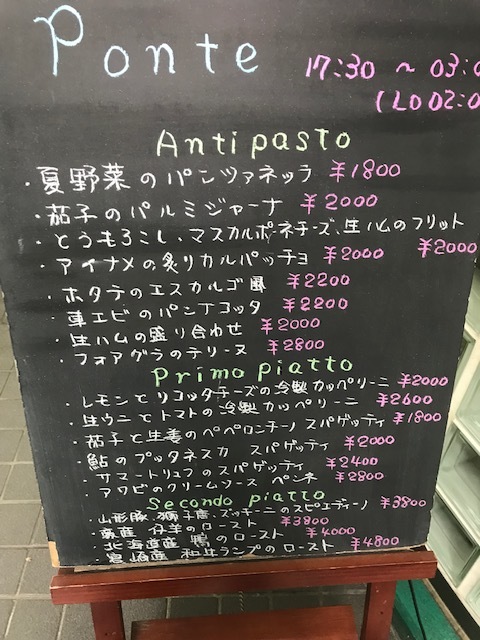 Ponte
17:30 ～ 03:0
(LO 02:0
Antipasto
・夏野菜のパンツァネッラ ¥1800
・茄子のパルミジャーナ ¥2000
・とうもろこし、マスカルポーネチーズ、生ハムのフリット ¥2000
・アイナメの炙りカルパッチョ ¥2000
・ホタテのエスカルゴ風 ¥2200
・車エビのパンナコッタ ¥2200
・生ハムの盛り合わせ ¥2000
・フォアグラのテリーヌ ¥2800
Primo piatto
・レモンとリコッタチーズの冷製カッペリーニ ¥2000
・生ウニとトマトの冷製カッペリーニ ¥2600
・茄子と生姜のペペロンチーノ スパゲッティ ¥1800
・鮎のプッタネスカ スパゲッティ ¥2000
・サマートリュフのスパゲッティ ¥2400
・アワビのクリームソース ペンネ ¥2800
Secondo piatto
・山形豚、獅子唐、ズッキーニのスピエディーノ ¥3800
産 仔羊のロースト ¥3800
・北海道産 鴨のロースト ¥4000
・宮崎産 和牛ランプのロースト ¥4800